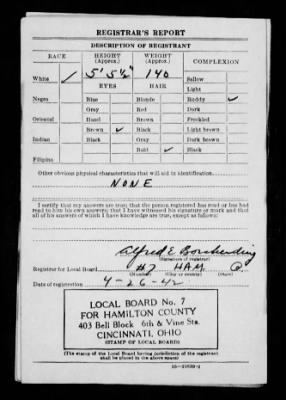 REGISTRAR'S REPORT
DESCRIPTION OF REGISTRANT
RACE HEIGHT (Approx.) WEIGHT (Approx.) COMPLEXION
White ✓ 5' 5½" 140 Sallow
EYES HAIR Light
Negro Blue Blonde Ruddy ✓
Gray Red Dark
Oriental Hazel Brown Freckled
Brown ✓ Black Light brown
Indian Black Gray Dark brown
Bald ✓ Black
Filipino
Other obvious physical characteristics that will aid in identification
NONE
I certify that my answers are true; that the person registered has read or has had
read to him his own answers; that I have witnessed his signature or mark and that
all of his answers of which I have knowledge are true, except as follows:
Alfred E
(Signature of registrar)
Registrar for Local Board #7 HAM O.
(Number) (City or county) (State)
Date of registration 4-26-42
LOCAL BOARD No. 7
FOR HAMILTON COUNTY
403 Bell Block 6th & Vine Sts.
CINCINNATI, OHIO
(STAMP OF LOCAL BOARD)
(The stamp of the Local Board having jurisdiction of the registrant
shall be placed in the above space)